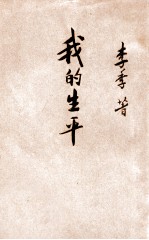 我的生平
李季著